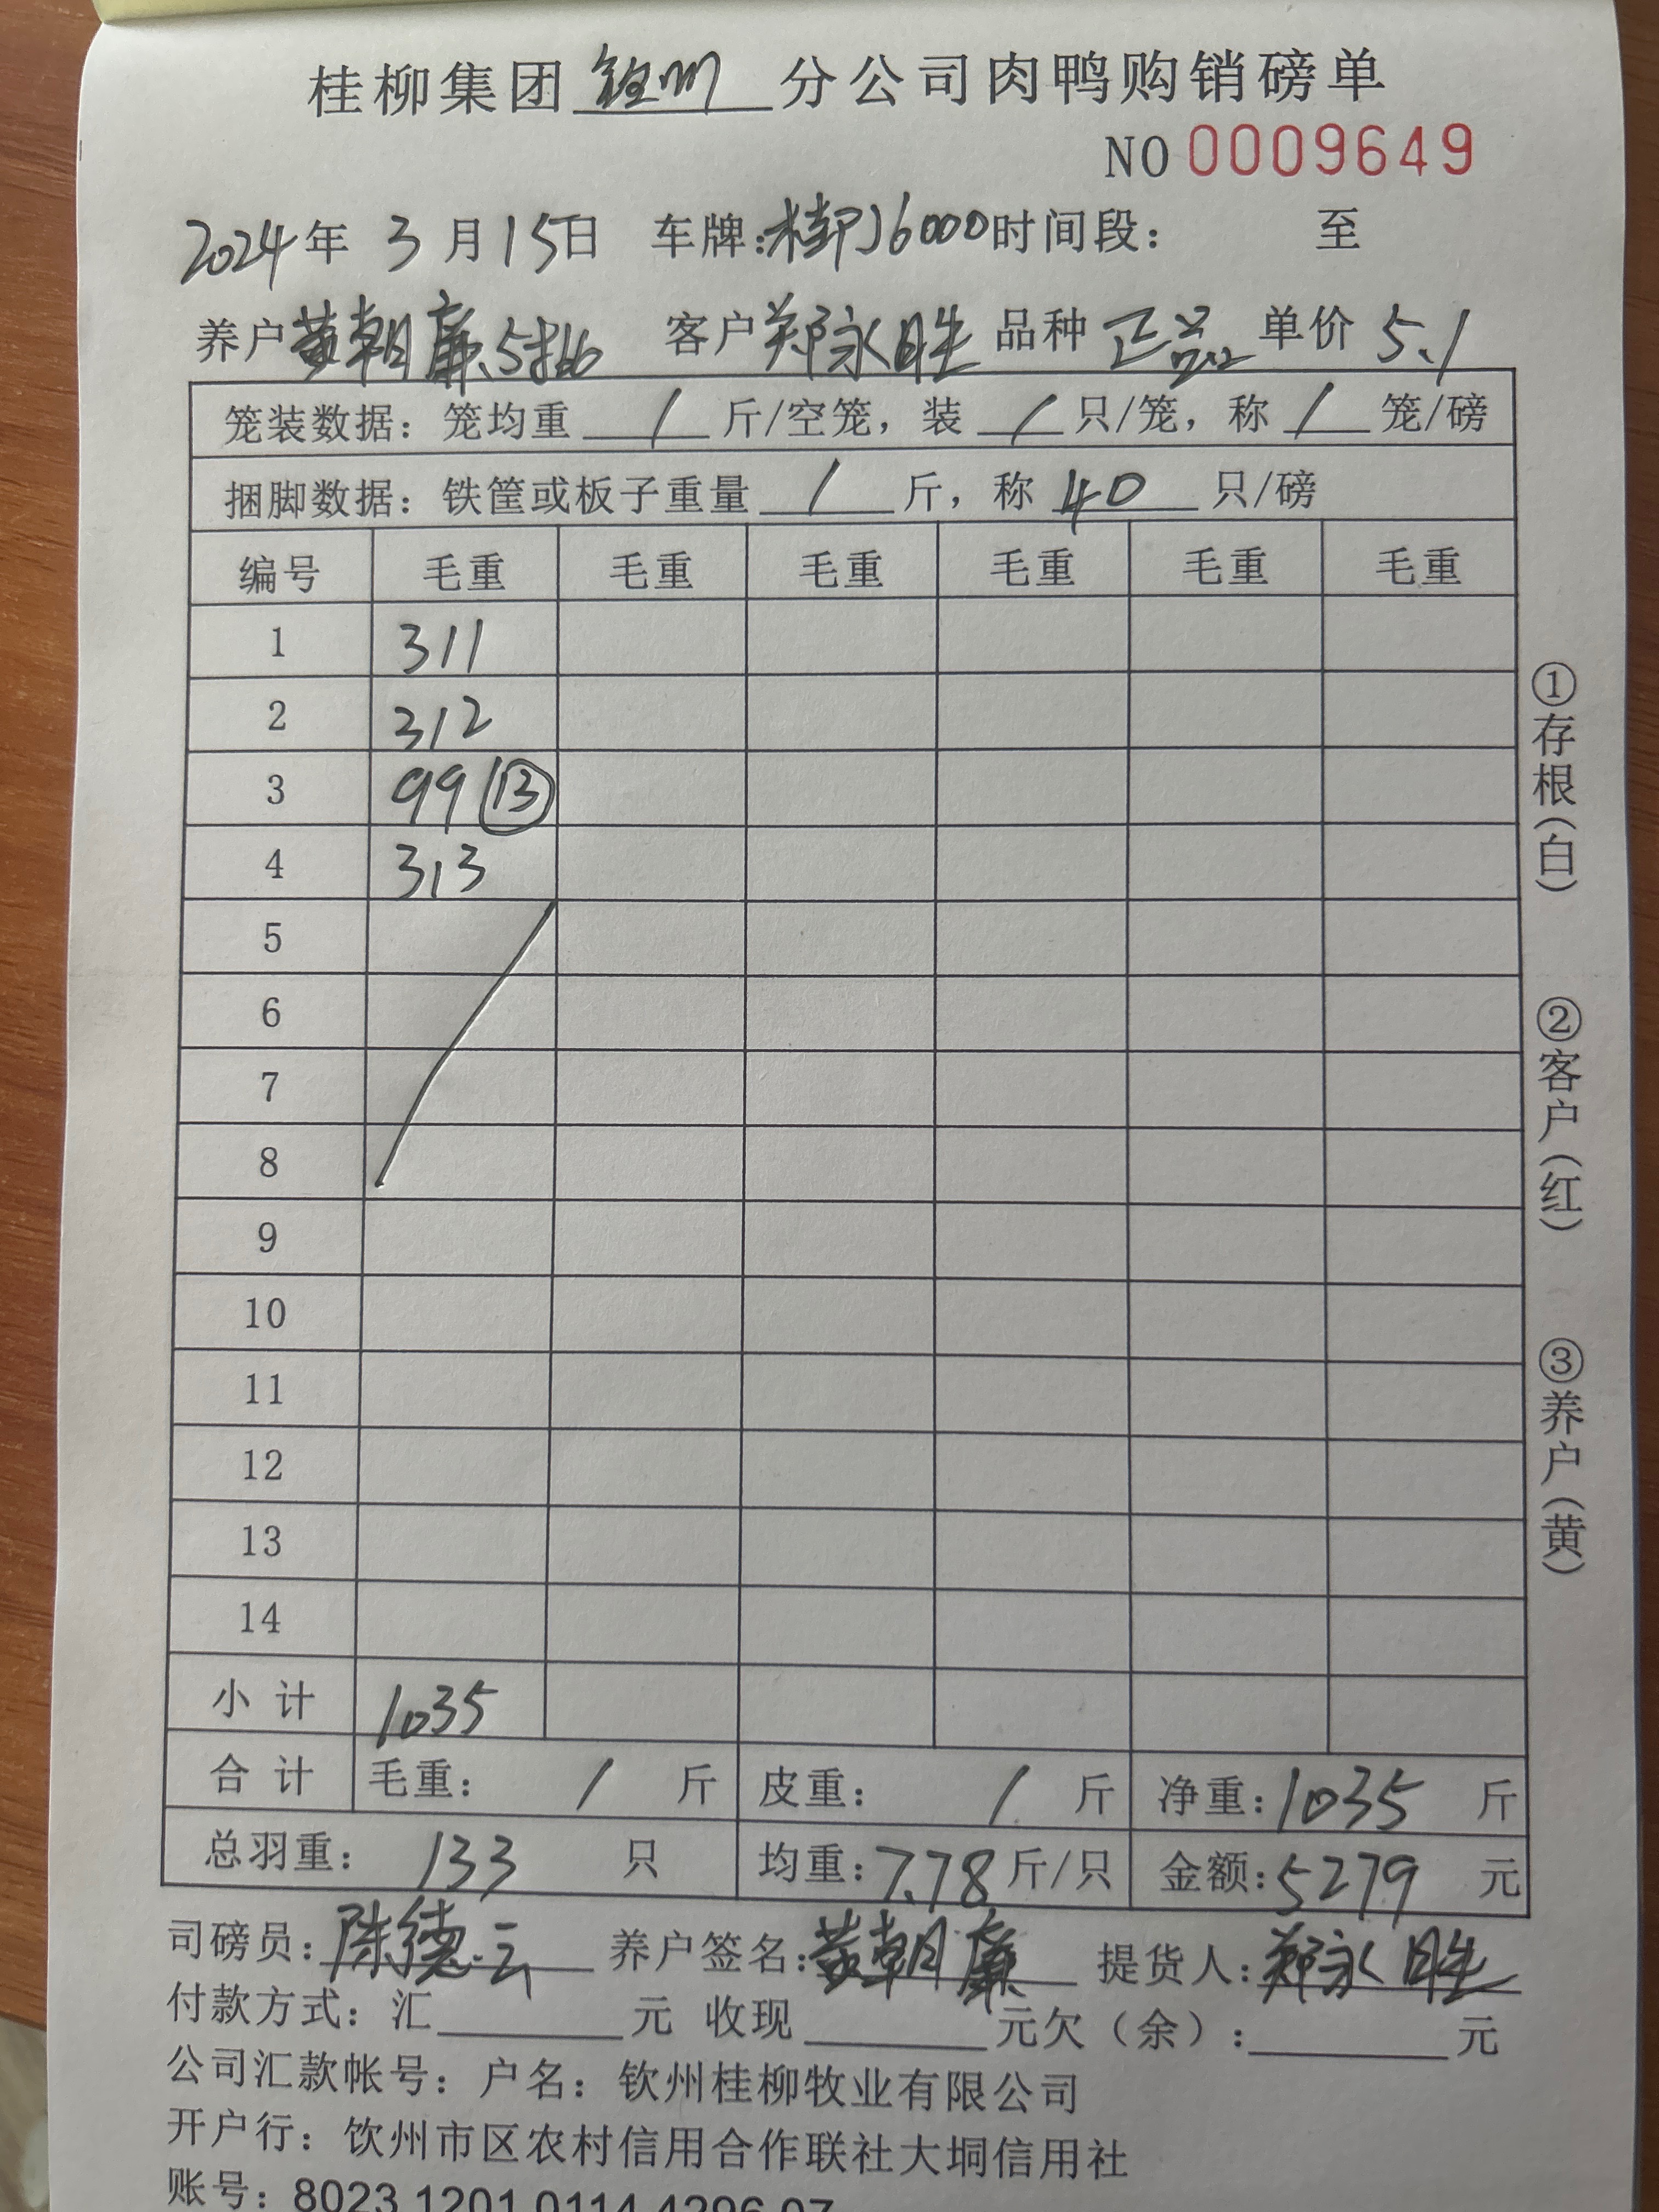 桂柳集团 钦州 分公司肉鸭购销磅单
NO 0009649
2024年 3月15日 车牌:桂P J6000 时间段: 至
养户 黄朝廉 5批 客户 郑永胜 品种 正品 单价 5.1
笼装数据: 笼均重 / 斤/空笼, 装 / 只/笼, 称 / 笼/磅
捆脚数据: 铁筐或板子重量 / 斤, 称 40 只/磅
编号 毛重 毛重 毛重 毛重 毛重 毛重
1 311
2 312
3 99 ⑬
4 313
5
6
7
8
9
10
11
12
13
14
小计 1035
合计 毛重: / 斤 皮重: / 斤 净重: 1035 斤
总羽重: 133 只 均重: 7.78 斤/只 金额: 5279 元
司磅员: 陈德云 养户签名: 黄朝廉 提货人: 郑永胜
付款方式: 汇 元 收现 元欠(余): 元
公司汇款帐号: 户名: 钦州桂柳牧业有限公司
开户行: 钦州市区农村信用合作联社大垌信用社
账号: 8023 1201 0114 4296 07
①存根(白)
②客户(红)
③养户(黄)